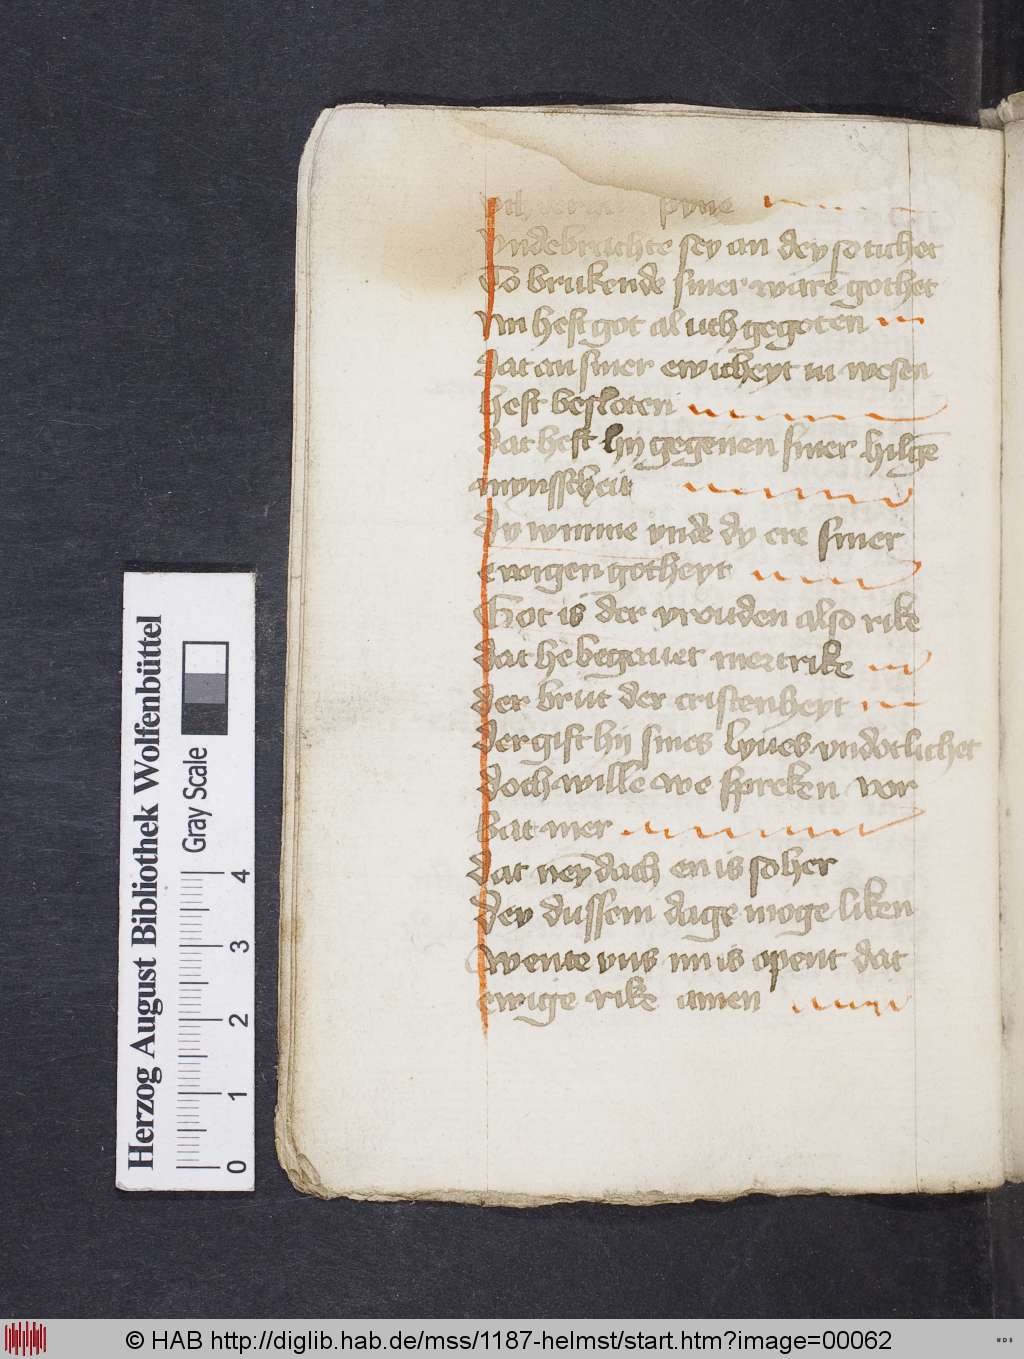 uth pyne
Vnde brachte sey an dey so tichet
To brukende siner warē gothet
Nu heft got al uth gegoten
dat an siner ewicheyt in wesen
heft besloten
dat heft hij gegenen siner hilgē
mynsscheit
dy wunne vnde dy ere siner
ewigen gotheyt
Got is der vrouden also rike
dat he begauet mertrike
der brut der cristenheyt
der gift hij sines lyues vndotlichet
doch wille we spreken vor
bat mer
dat ney dach en is so her
dey dussem dage moge liken
wente vns nu is opent dat
ewige rike amen
Herzog August Bibliothek Wolfenbüttel
Gray Scale
0 1 2 3 4
© HAB http://diglib.hab.de/mss/1187-helmst/start.htm?image=00062